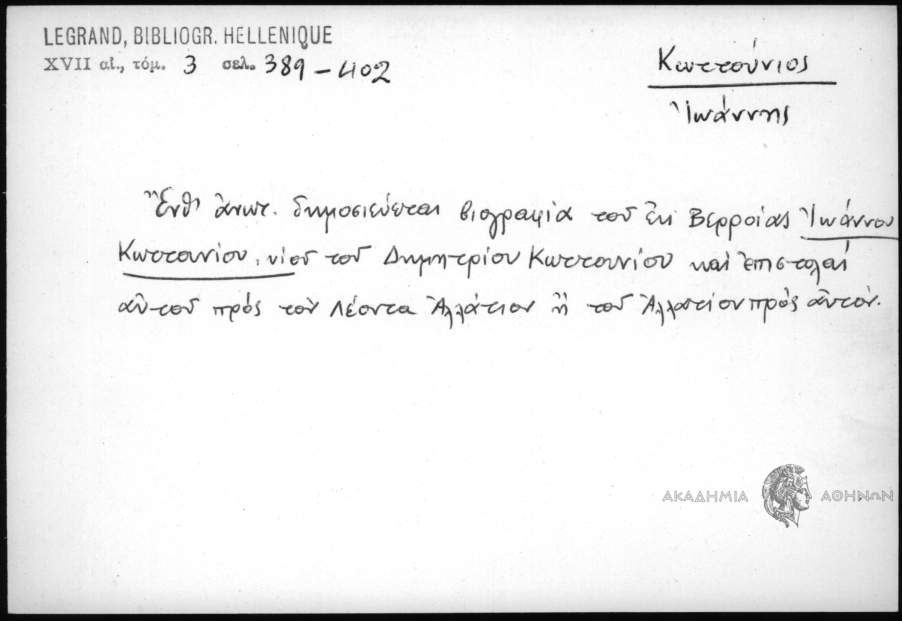 LEGRAND, BIBLIOGR. HELLENIQUE
XVII αἰ., τόμ. 3 σελ. 389-402
Κωττούνιος
Ἰωάννης
Ἔνθ' ἀνωτ. δημοσιεύεται βιογραφία τοῦ ἐκ Βερροίας Ἰωάννου
Κωττουνίου, υἱοῦ τοῦ Δημητρίου Κωττουνίου καὶ ἐπιστολαὶ
αὐτοῦ πρὸς τὸν Λέοντα Ἀλλάτιον ἢ τοῦ Ἀλλατίου πρὸς αὐτόν.
ΑΚΑΔΗΜΙΑ ΑΘΗΝΩΝ